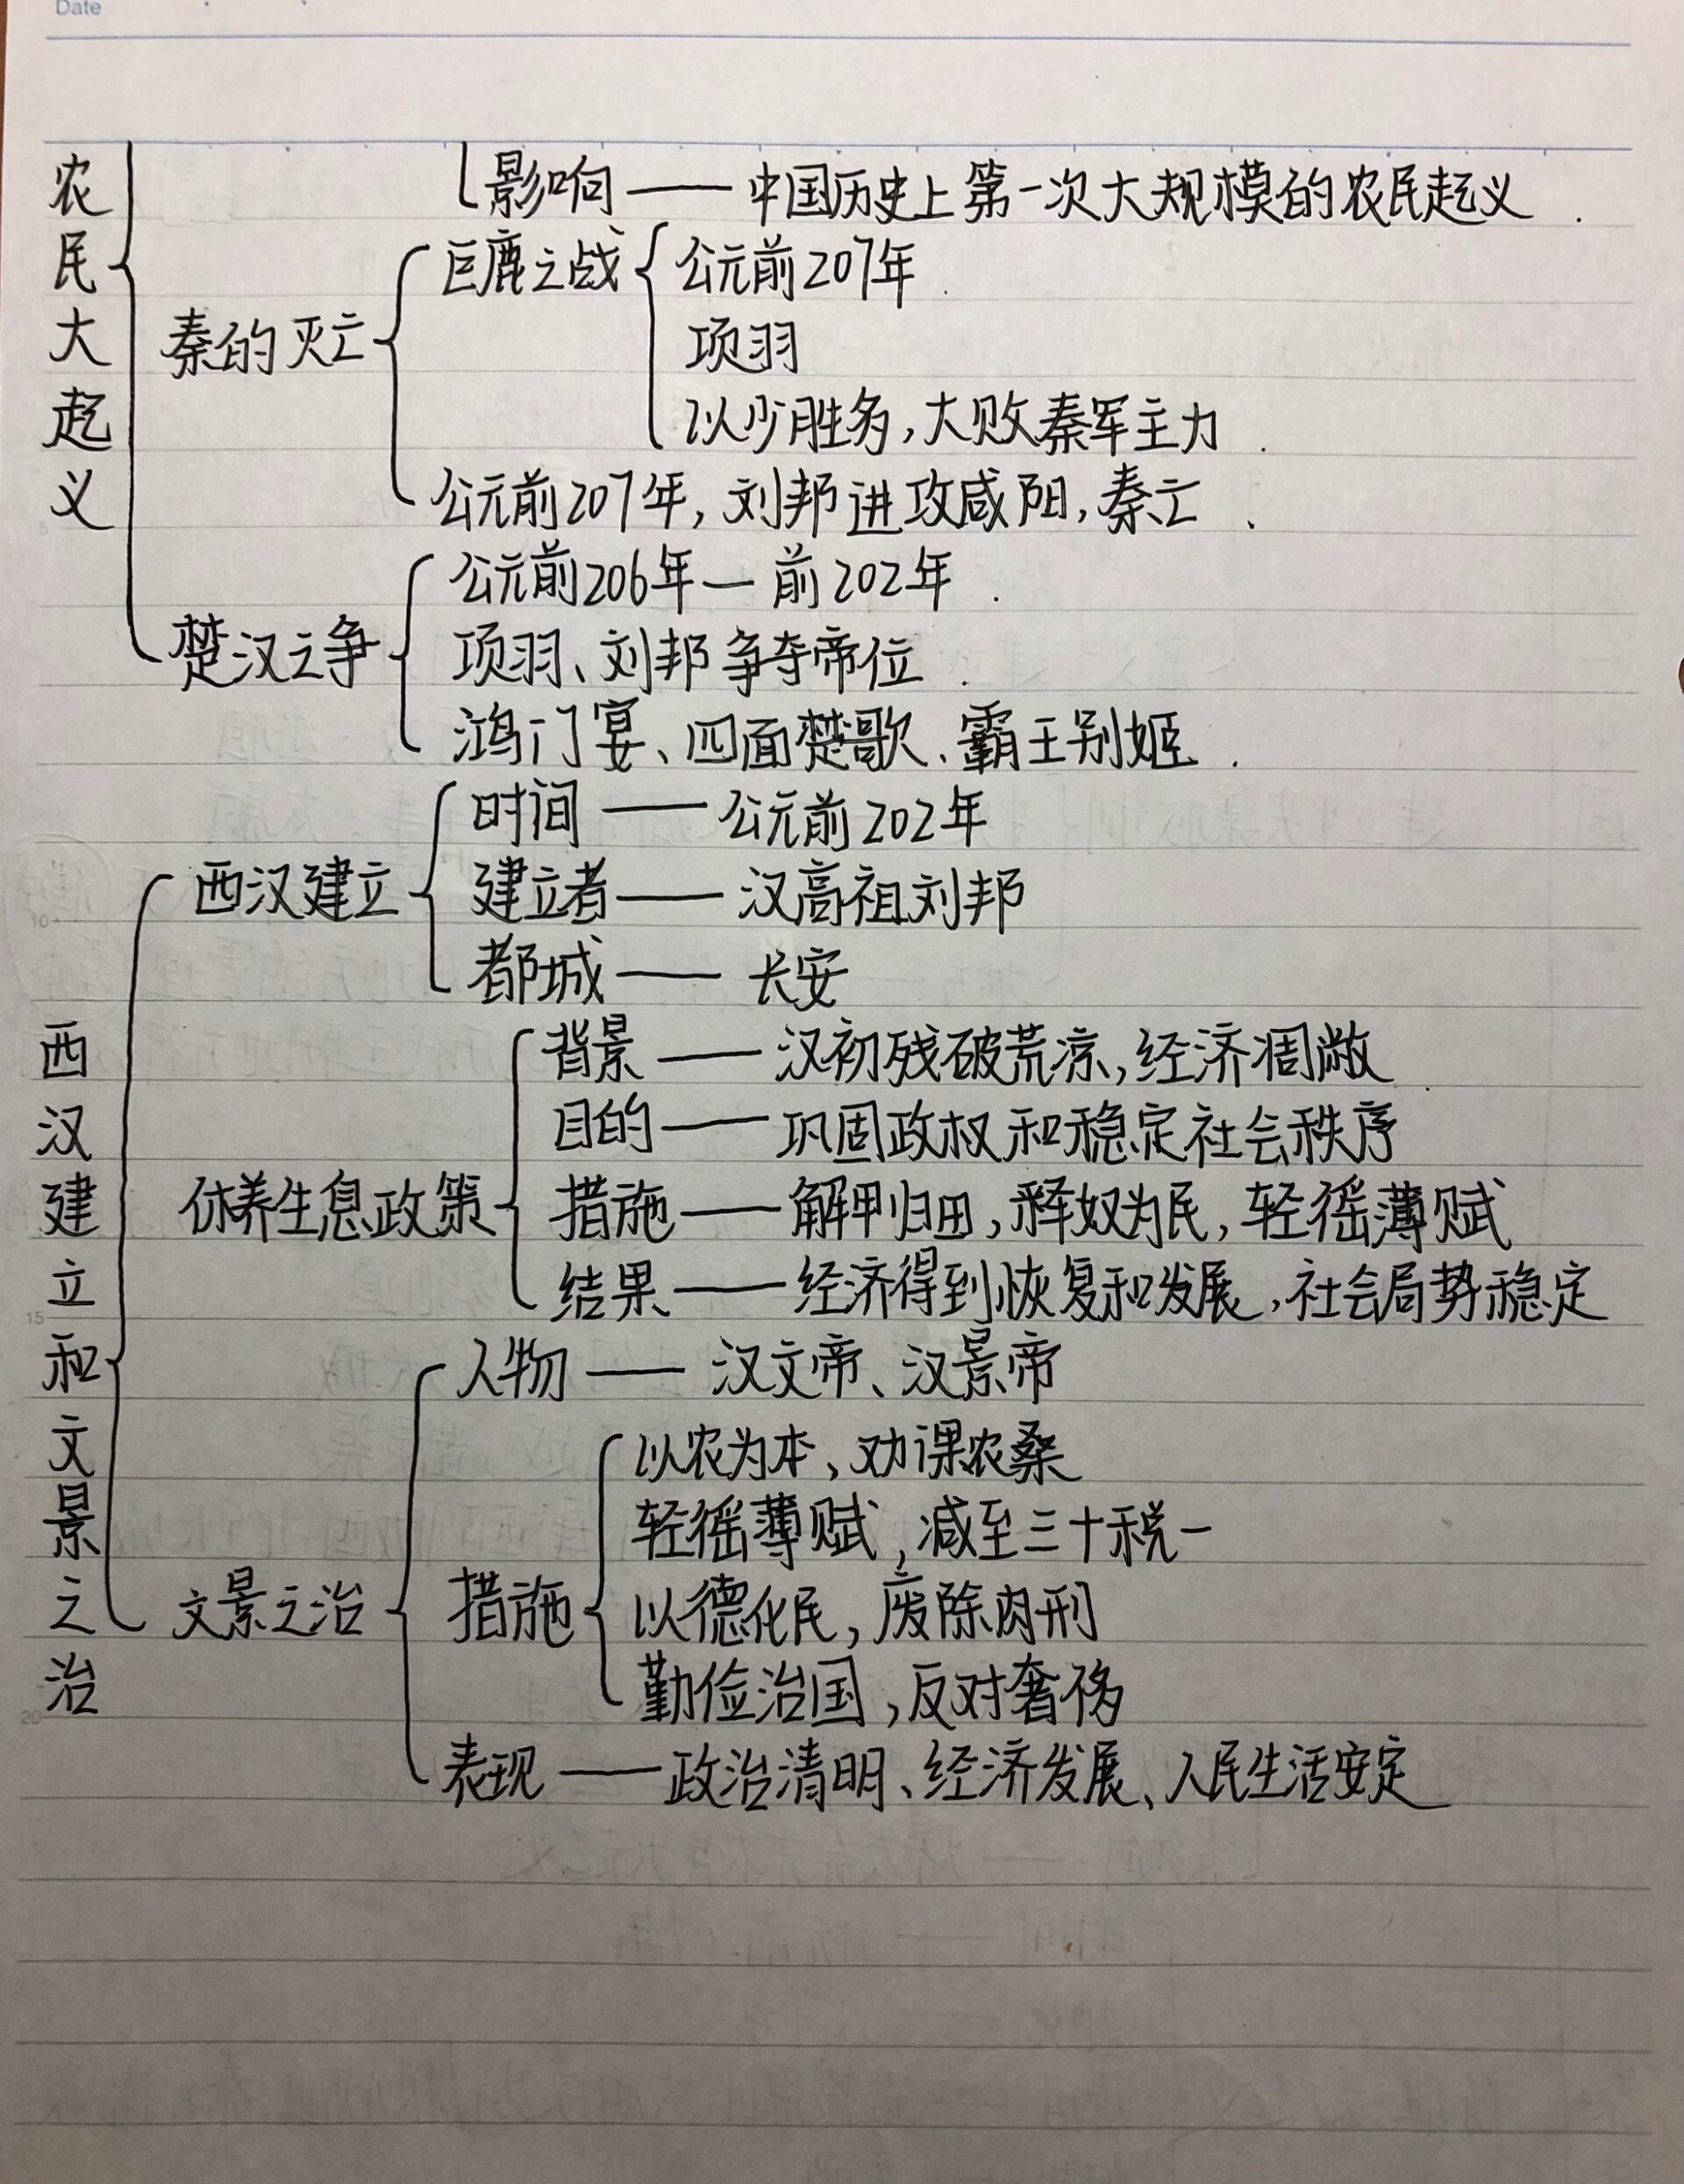 Date
农民大起义
影响——中国历史上第一次大规模的农民起义.
秦的灭亡
巨鹿之战
公元前207年
项羽
以少胜多,大败秦军主力.
公元前207年,刘邦进攻咸阳,秦亡.
楚汉之争
公元前206年—前202年.
项羽、刘邦争夺帝位.
鸿门宴、四面楚歌、霸王别姬.
西汉建立和文景之治
西汉建立
时间——公元前202年
建立者——汉高祖刘邦
都城——长安
休养生息政策
背景——汉初残破荒凉,经济凋敝
目的——巩固政权和稳定社会秩序
措施——解甲归田,释奴为民,轻徭薄赋
结果——经济得到恢复和发展,社会局势稳定
文景之治
人物——汉文帝、汉景帝
措施
以农为本、劝课农桑
轻徭薄赋,减至三十税一
以德化民,废除肉刑
勤俭治国,反对奢侈
表现——政治清明、经济发展、人民生活安定
10
15
20